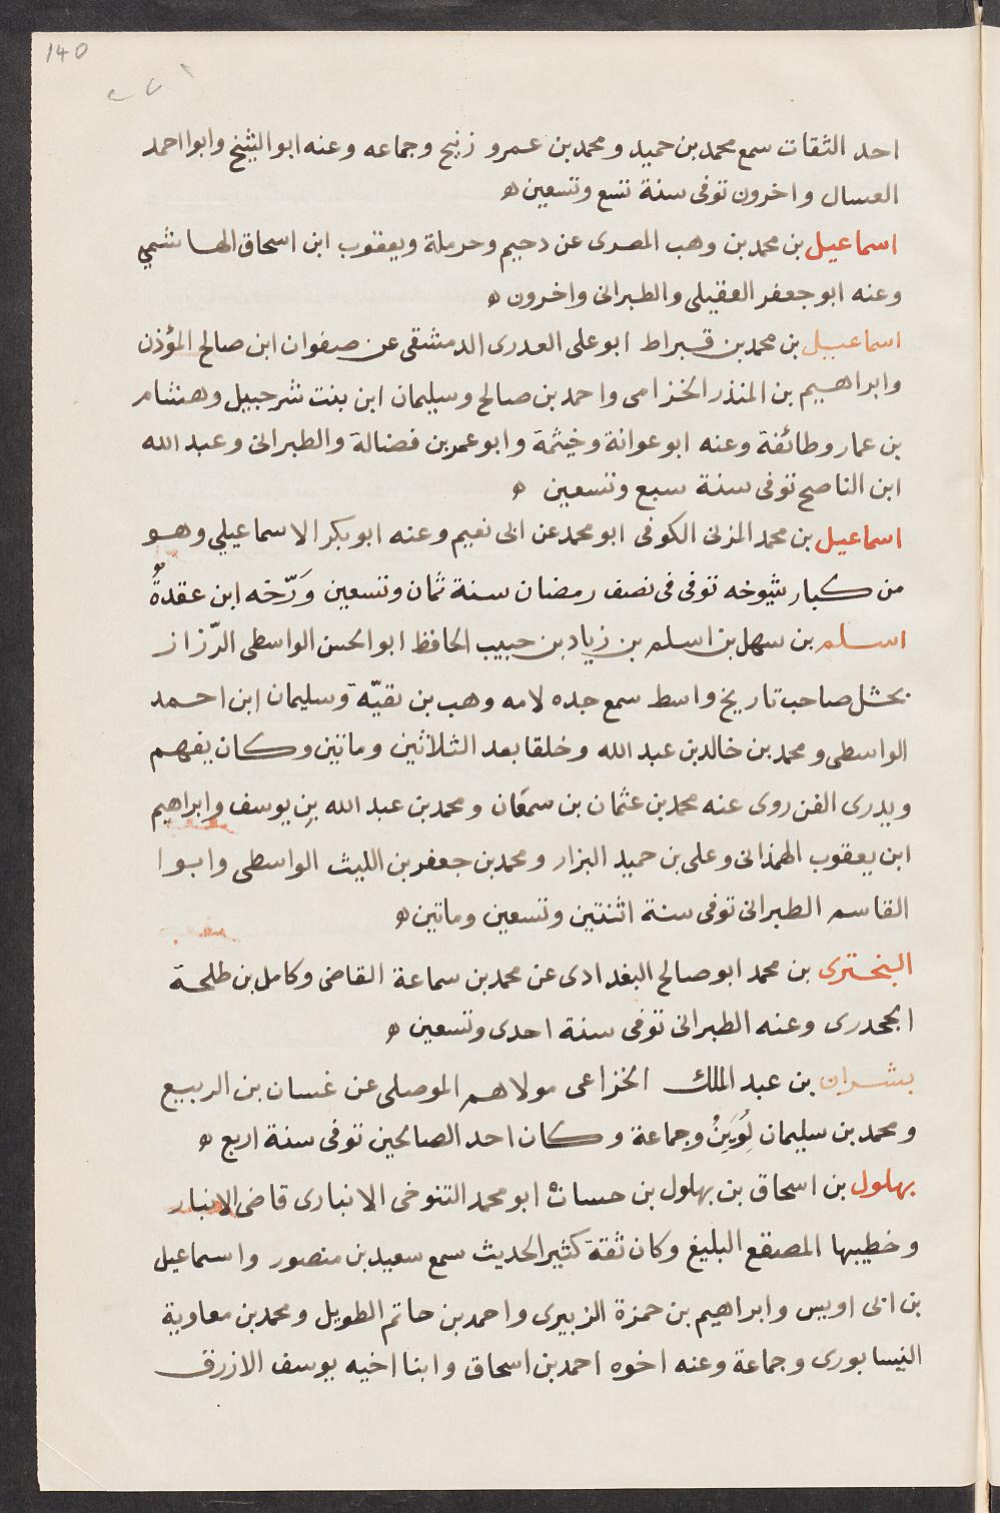 140
احد الثقات سمع محمد بن حميد ومحمد بن عمرو زنيج وجماعه وعنه ابو الشيخ وابوا احمد
العسال واخرون توفى سنة تسع وتسعين ه
اسماعيل بن محمد بن وهب المصرى عن دحيم وحرملة ويعقوب ابن اسحاق الهاشمي
وعنه ابو جعفر العقيلى والطبرانى واخرون ه
اسماعيل بن محمد بن قيراط ابو على العدرى الدمشقى عن صفوان ابن صالح المؤذن
وابراهيم بن المنذر الخزامى واحمد بن صالح وسليمان ابن بنت شرحبيل وهشام
بن عمار وطائفة وعنه ابو عوانة وخيثمة وابو عمر بن فضالة والطبرانى وعبد الله
ابن الناصح توفى سنة سبع وتسعين ه
اسماعيل بن محمد المزنى الكوفى ابو محمد عن ابى نعيم وعنه ابو بكر الاسماعيلي وهو
من كبار شيوخه توفى فى نصف رمضان سنة ثمان وتسعين وَرّخه ابن عقدةُ
اسلم بن سهل بن اسلم بن زياد بن حبيب الحافظ ابو الحسن الواسطى الرّزاز
بحشل صاحب تاريخ واسط سمع جده لامه وهب بن بقيّة وسليمان ابن احمد
الواسطى ومحمد بن خالد بن عبد الله وخلقا بعد الثلاثين وماتين وكان يفهم
ويدرى الفن روى عنه محمد بن عثمان بن سمعان ومحمد بن عبد الله بن يوسف وابراهيم
ابن يعقوب الهمذانى وعلى بن حميد البزار ومحمد بن جعفر بن الليث الواسطى وابوا
القاسم الطبرانى توفى سنة اثنتين وتسعين وماتين ه
البخترى بن محمد ابو صالح البغدادى عن محمد بن سماعة القاضى وكامل بن طلحة
الجحدرى وعنه الطبرانى توفى سنة احدى وتسعين ه
بشران بن عبد الملك الخزاعى مولاهم الموصلى عن غسان بن الربيع
ومحمد بن سليمان لُوَينُ وجماعة وكان احد الصالحين توفى سنة اربع ه
بهلول بن اسحاق بن بهلول بن حسان ابو محمد التنوخى الانبارى قاضى الانبار
وخطيبها المصقع البليغ وكان ثقة كثير الحديث سمع سعيد بن منصور واسماعيل
بن ابى اويس وابراهيم بن حمزة الزبيرى واحمد بن حاتم الطويل ومحمد بن معاوية
النيسابورى وجماعة وعنه اخوه احمد بن اسحاق وابنا اخيه يوسف الازرق